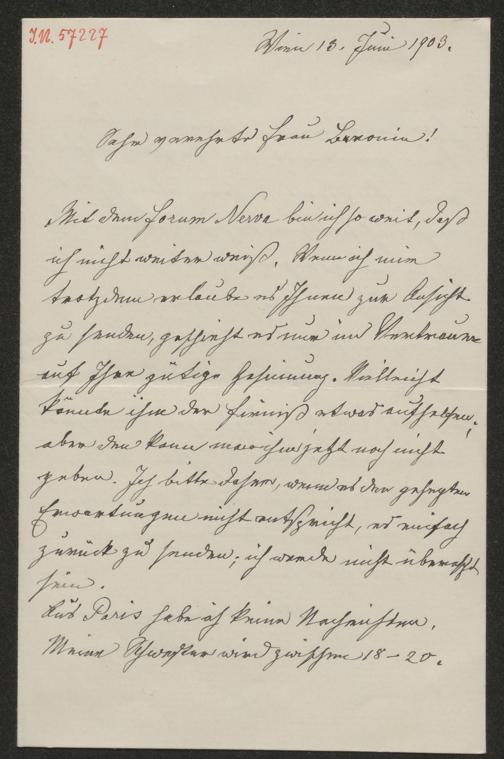 I.N. 57227
Wien 13. Juni 1903.
Sehr verehrte Frau Baronin!
Mit dem Forum Nerva bin ich so weit, daß
ich nicht weiter weiß. Wenn ich mir
trotzdem erlaube es Ihnen zur Ansicht
zu senden, geschieht es nur im Vertrauen
auf Ihre gütige Gesinnung. Vielleicht
könnte ihm der Firniß etwas aufhelfen,
aber den kann man ihm jetzt noch nicht
geben. Ich bitte daher, wenn es den gehegten
Erwartungen nicht entspricht, es einfach
zurück zu senden; ich werde nicht überrascht
sein.
Aus Paris habe ich keine Nachrichten.
Meine Schwester wird zwischen 18–20.